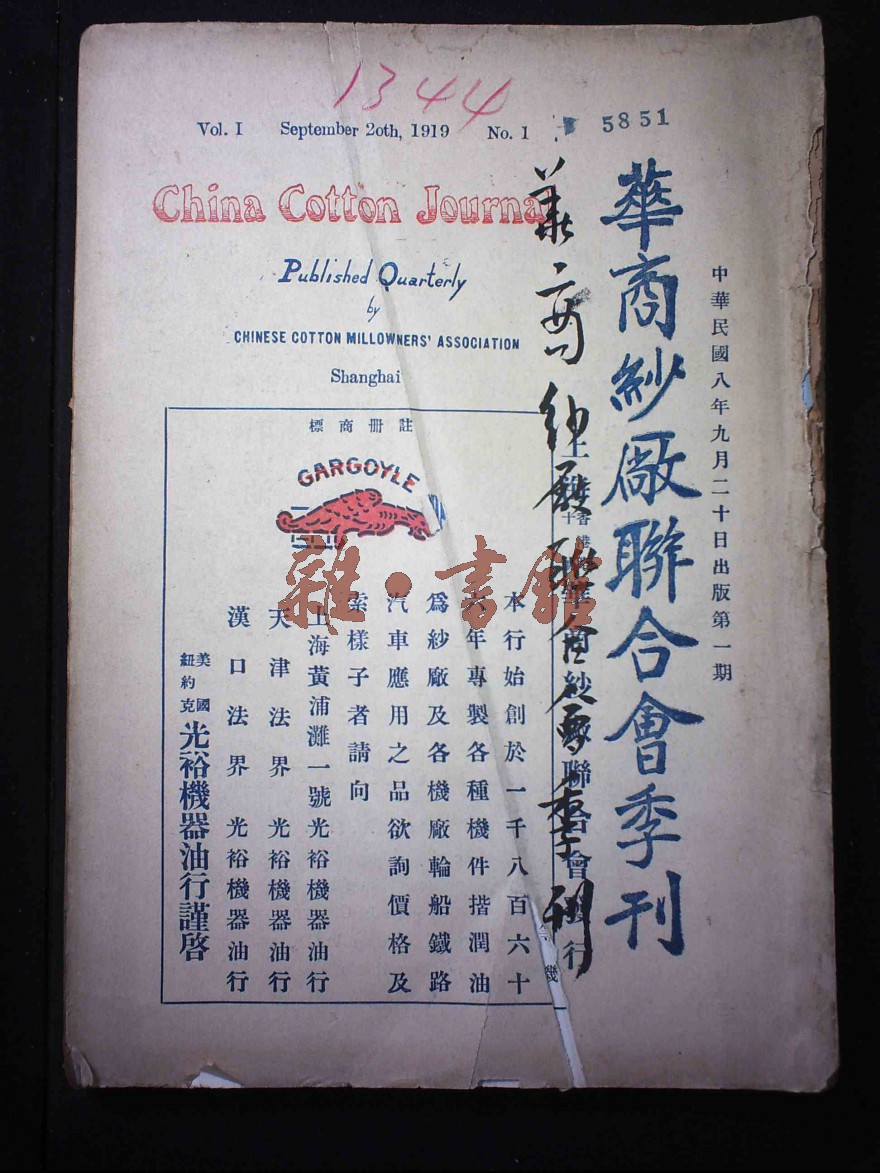 1344
Vol. I September 20th, 1919 No. 1
5851
China Cotton Journal
Published Quarterly
by
CHINESE COTTON MILLOWNERS' ASSOCIATION
Shanghai
中華民國八年九月二十日出版第一期
華商紗廠聯合會季刊
華商紗廠聯合會季刊
標商册註
GARGOYLE
本行始創於一千八百六十
六年專製各種機件揩潤油
爲紗廠及各機廠輪船鐵路
汽車應用之品欲詢價格及
索樣子者請向
上海黃浦灘一號光裕機器油行
天津法界光裕機器油行
漢口法界光裕機器油行
美國紐約克光裕機器油行謹啓
雜·書館